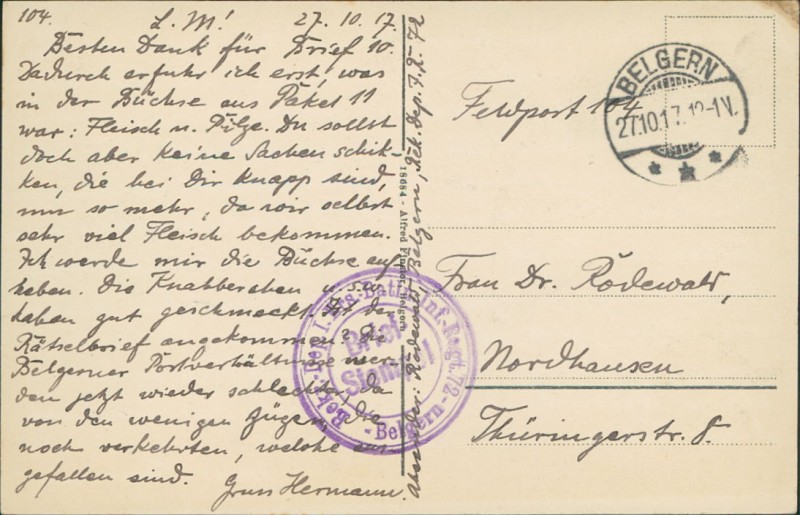 104. L. M! 27.10.17
Besten Dank für Brief 10.
Dadurch erfuhr ich erst, was
in der Büchse aus Paket 11
war: Fleisch u. Pilze. Du sollst
doch aber keine Sachen schik-
ken, die bei Dir knapp sind,
um so mehr, da wir selbst
sehr viel Fleisch bekommen.
Ich werde mir die Büchse auf
heben. Die Knabbereien u.s.w.
haben gut geschmeckt. Ist der
Rätselbrief angekommen? Die
Belgerner Postverhältnisse wer-
den jetzt wieder schlechter, da
von den wenigen Zügen, die
noch verkehrten, welche aus
gefallen sind.
Gruss Hermann.
Absender: Rödewald, Belgern, Rek. Dep. I. R. 72
18684 - Alfred Belgern
Bek. Dep. I. Ers. Batl. Inf. Regt. 72
Brief
Stempel
- Belgern -
BELGERN
27.10.17. 12-1 N.
Feldpost 104
Frau Dr. Rödewald,
Nordhausen
Thüringerstr. 8.